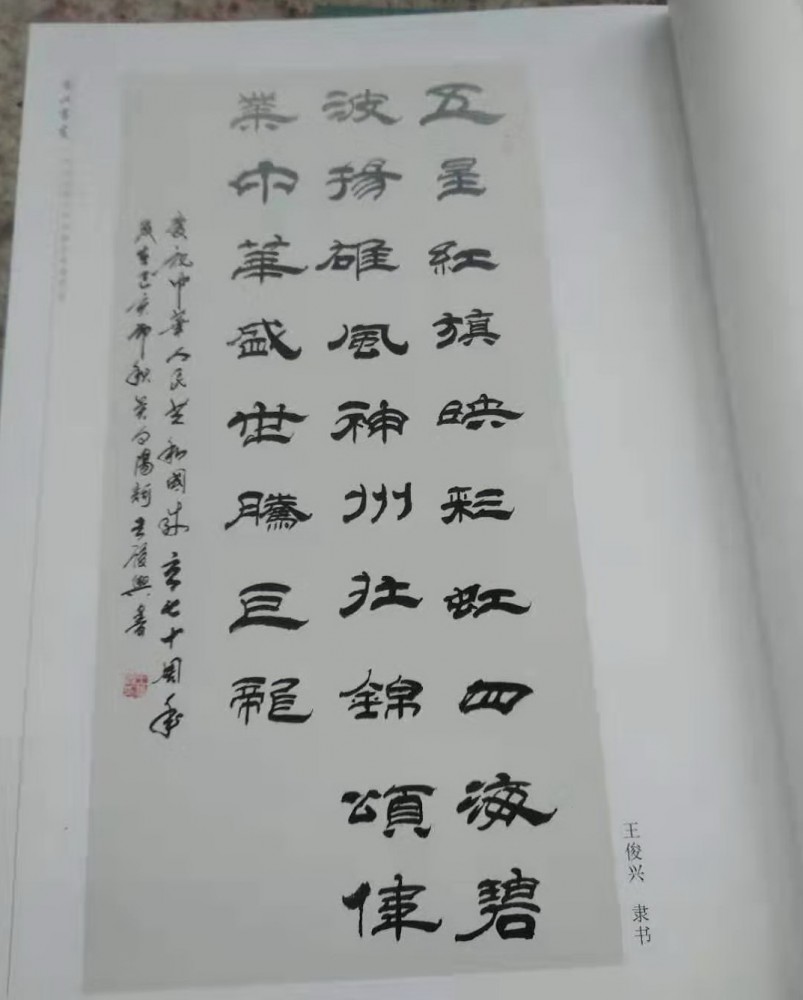 五星紅旗映彩虹四海碧
波揚雄風神州壮錦頌偉
業中華盛世騰巨龍
慶祝中華人民共和國成立七十周年
歲在己亥仲秋 書
王俊兴 隶书